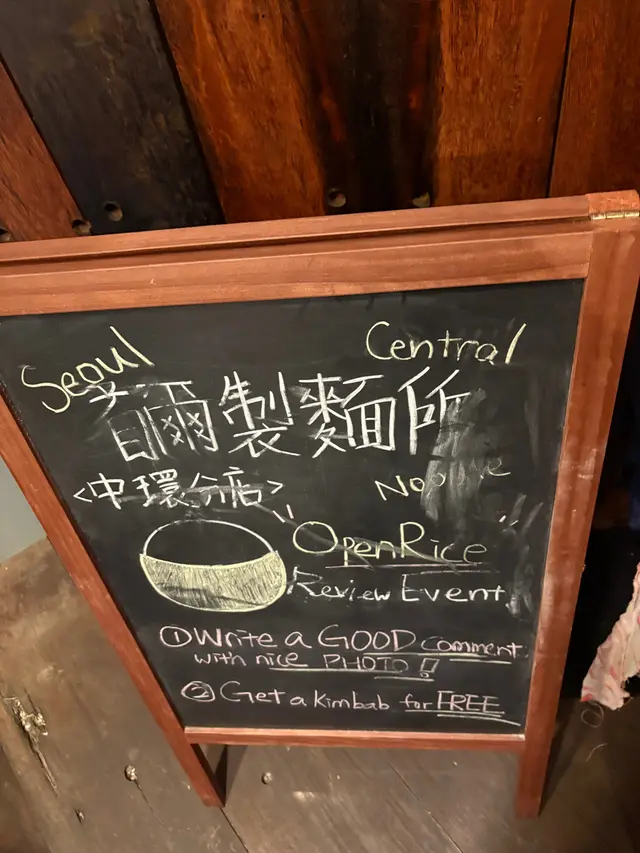 Seoul Central
首爾製麵所
<中環分店>
Noodle
OpenRice
Review Event
① Write a GOOD comment
with nice PHOTO!!
② Get a Kimbab for FREE